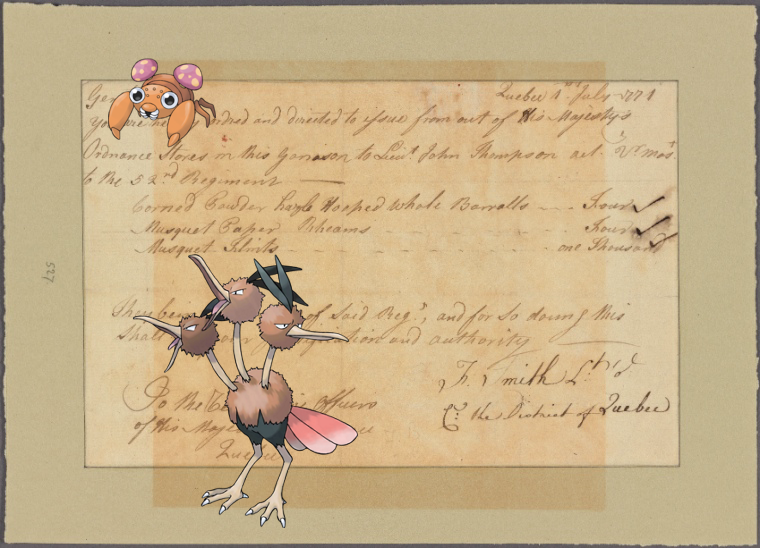 Quebec 1st July 1771
You are he ordred and directed to issue from out of His Majestys
Ordnance Stores in this Garrison to Lieut. John Thompson act. Qr. masr.
to the 52nd Regiment
Corned Powder hazle Hooped whole Barralls - - - Four
Musquet Paper Rheams - - - Four
Musquet Flints - - - one Thousand
of Said Regt., and for So doing this
Shall and authority
To the officers
of His Maj
Quebec
Smith
the District of Quebec
527